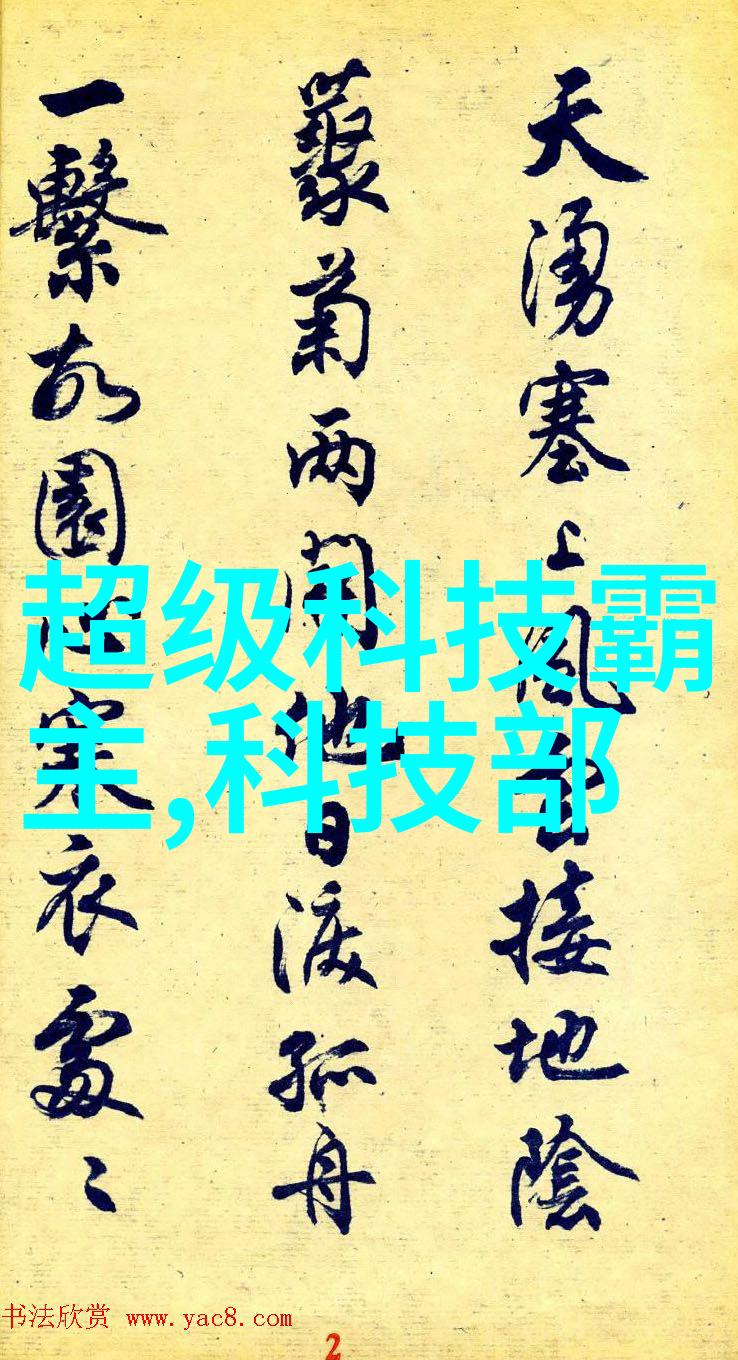 天湧塞上風雲接地陰
藂菊两開他日淚孤舟
一繫故園心寒衣處〻
超级科技霸
主,科技部
书法欣赏 www.yac8.com
2